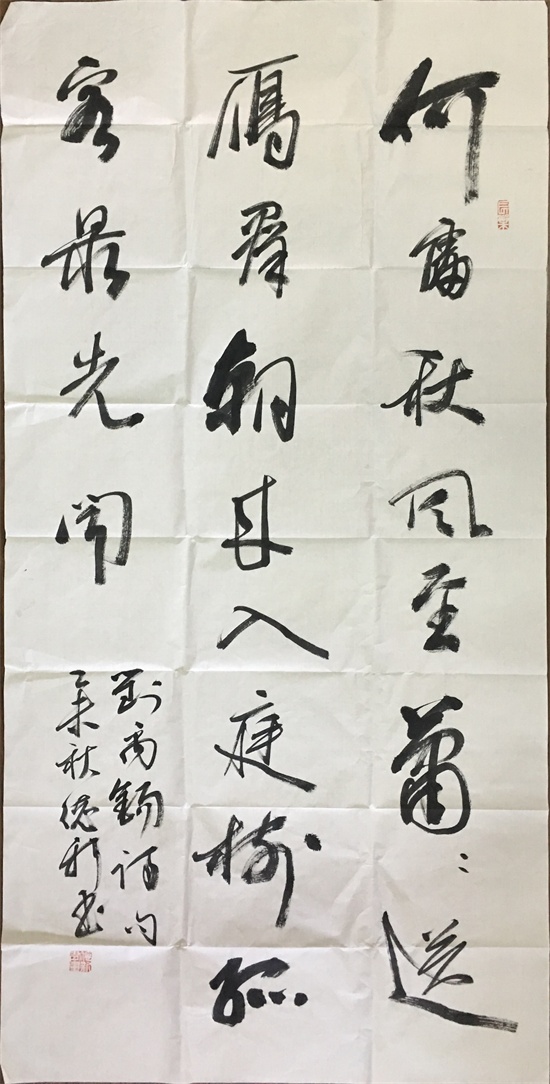 何處秋風至蕭々送
鴈羣朝来入庭樹孤
客最先聞
劉禹錫詩句
乙未秋德書